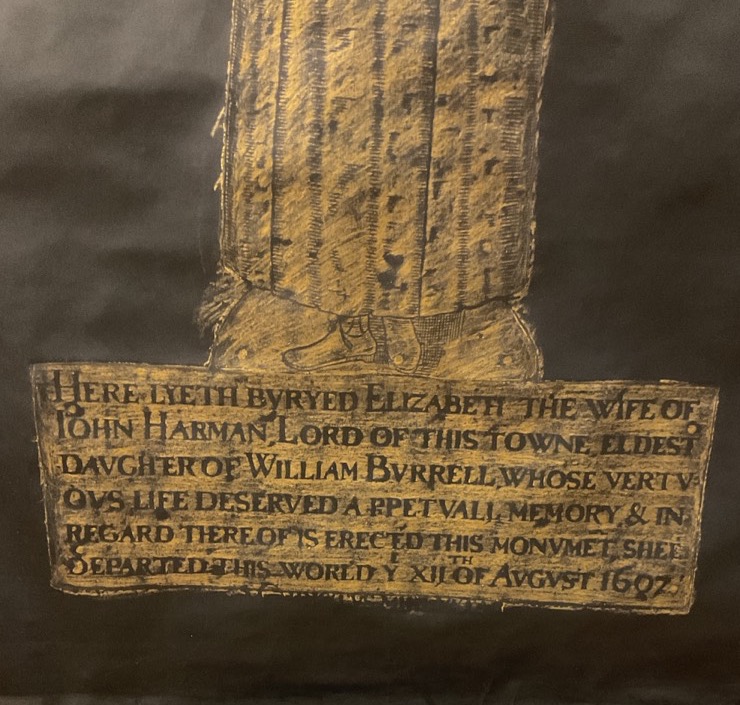 HERE LYETH BVRYED ELIZABETH THE WIFE OF
IOHN HARMAN, LORD OF THIS TOWNE, ELDEST
DAVGHTER OF WILLIAM BVRRELL, WHOSE VERTV-
OVS LIFE DESERVED A PPETVALL MEMORY & IN
REGARD THEREOF IS ERECTED THIS MONVMET, SHEE
DEPARTED THIS WORLD Y XIJ TH OF AVGVST 1607.